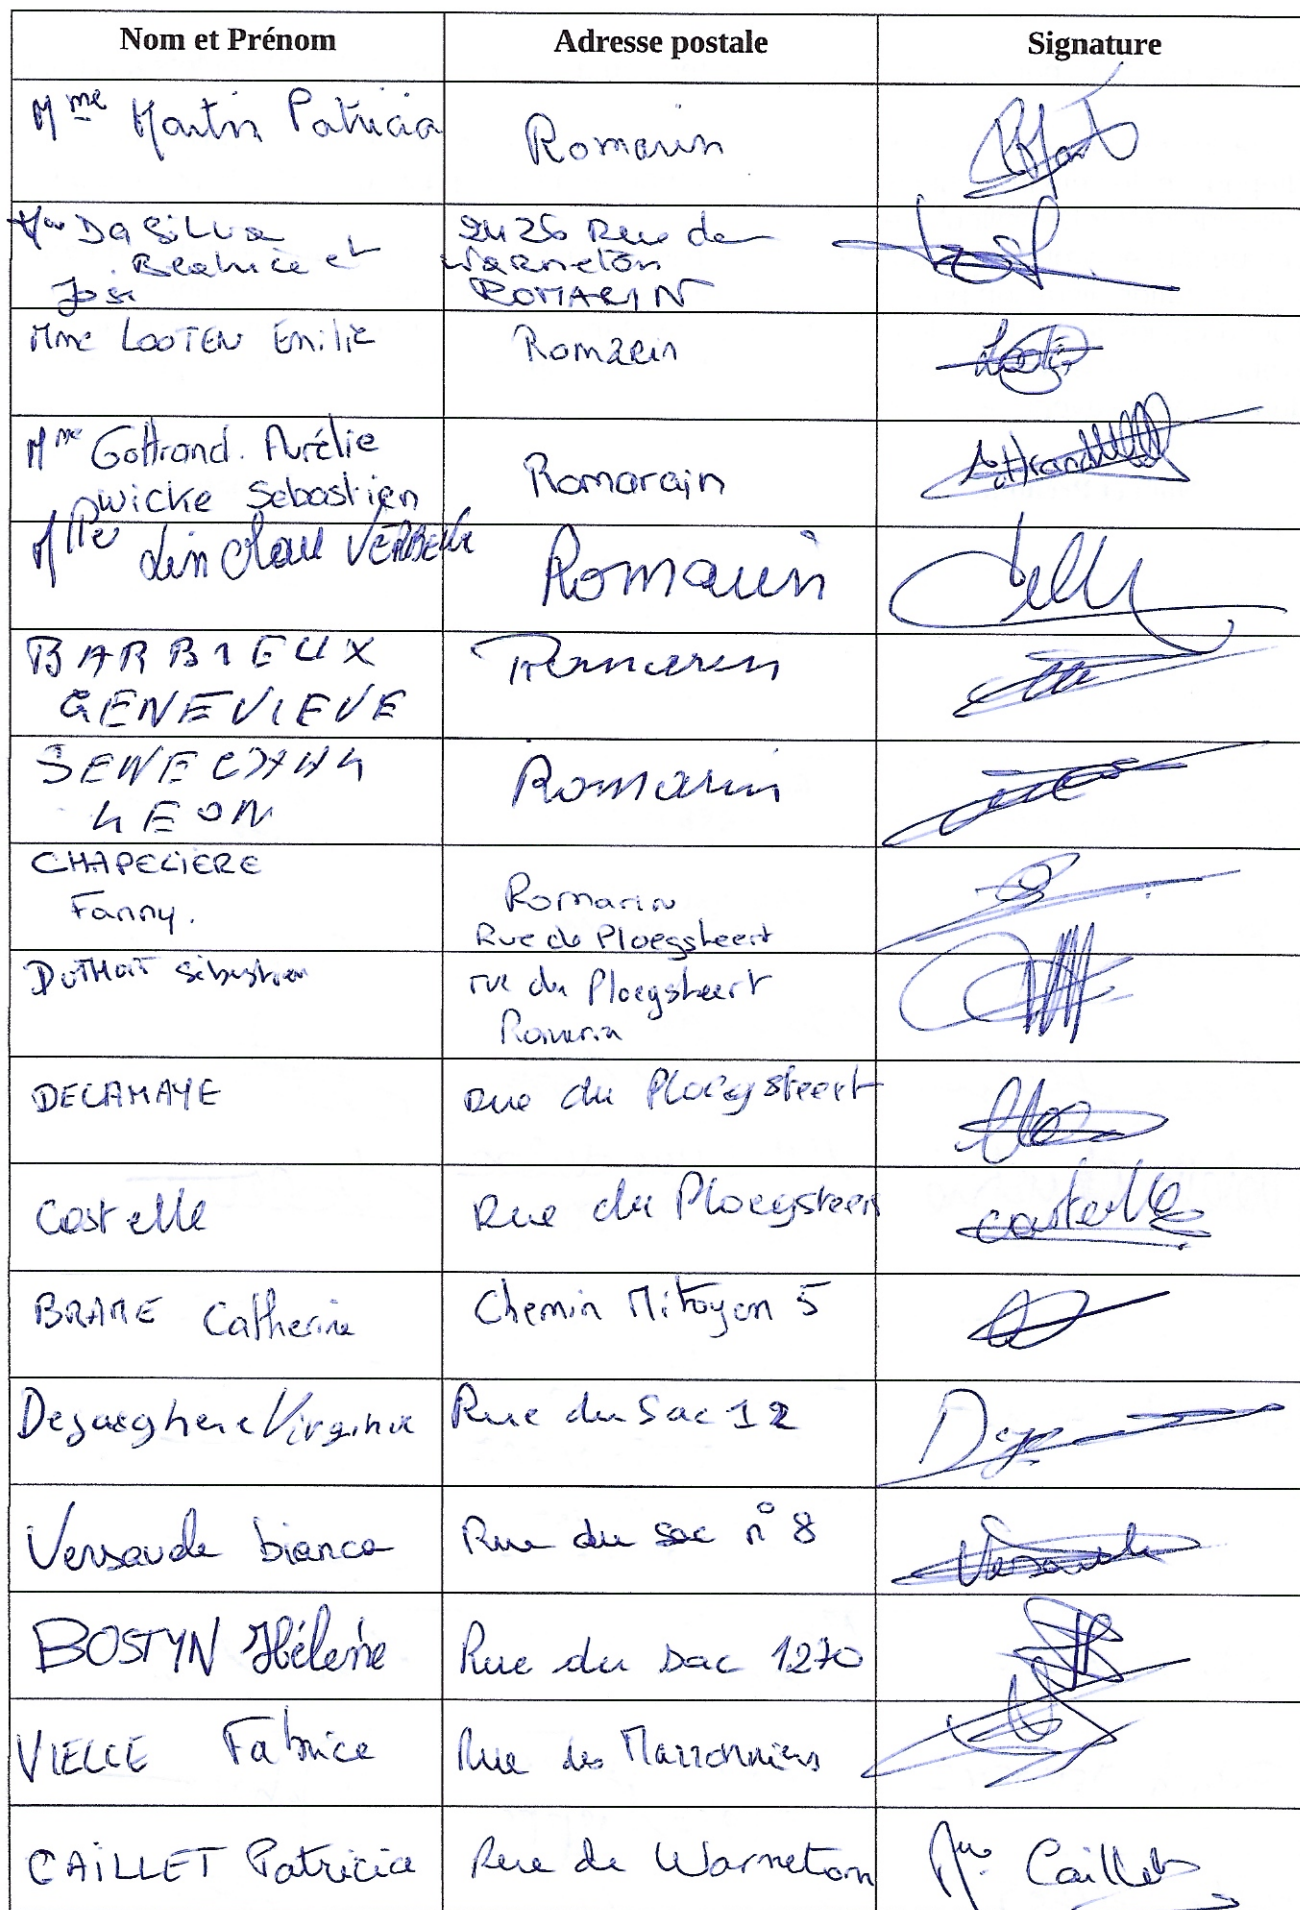 Nom et Prénom Adresse postale Signature
Mme Martin Patricia Romarin
Da Silva 2426 Rue de
Beatrice et Warneton
José ROMARIN
Mme LOOTEN Emilie Romarin
Mme Gottrand. Aurélie
Wicke Sebastien Romarain Gottrand
Mlle VERBEKE Romarin
BARBIEUX Romarin
GENEVIEVE
SENECHAL Romarin
LEON
CHAPELIERE
Fanny. Romarin
Rue de Ploegsteert
DUTHOIT Sébastien rue du Ploegsteert
Romarin
DELAHAYE Rue du Ploegsteert
Castelle Rue du Ploegsteert castelle
BRAME Catherine Chemin Mitoyen 5
Dejaeghere Virginie Rue du Sac 12
Versavele bianca Rue du sac n° 8
BOSTYN Hélène Rue du Sac 1270
VIELLE Fabrice Rue des Marronniers
CAILLET Patricia Rue de Warneton Mme Caillet